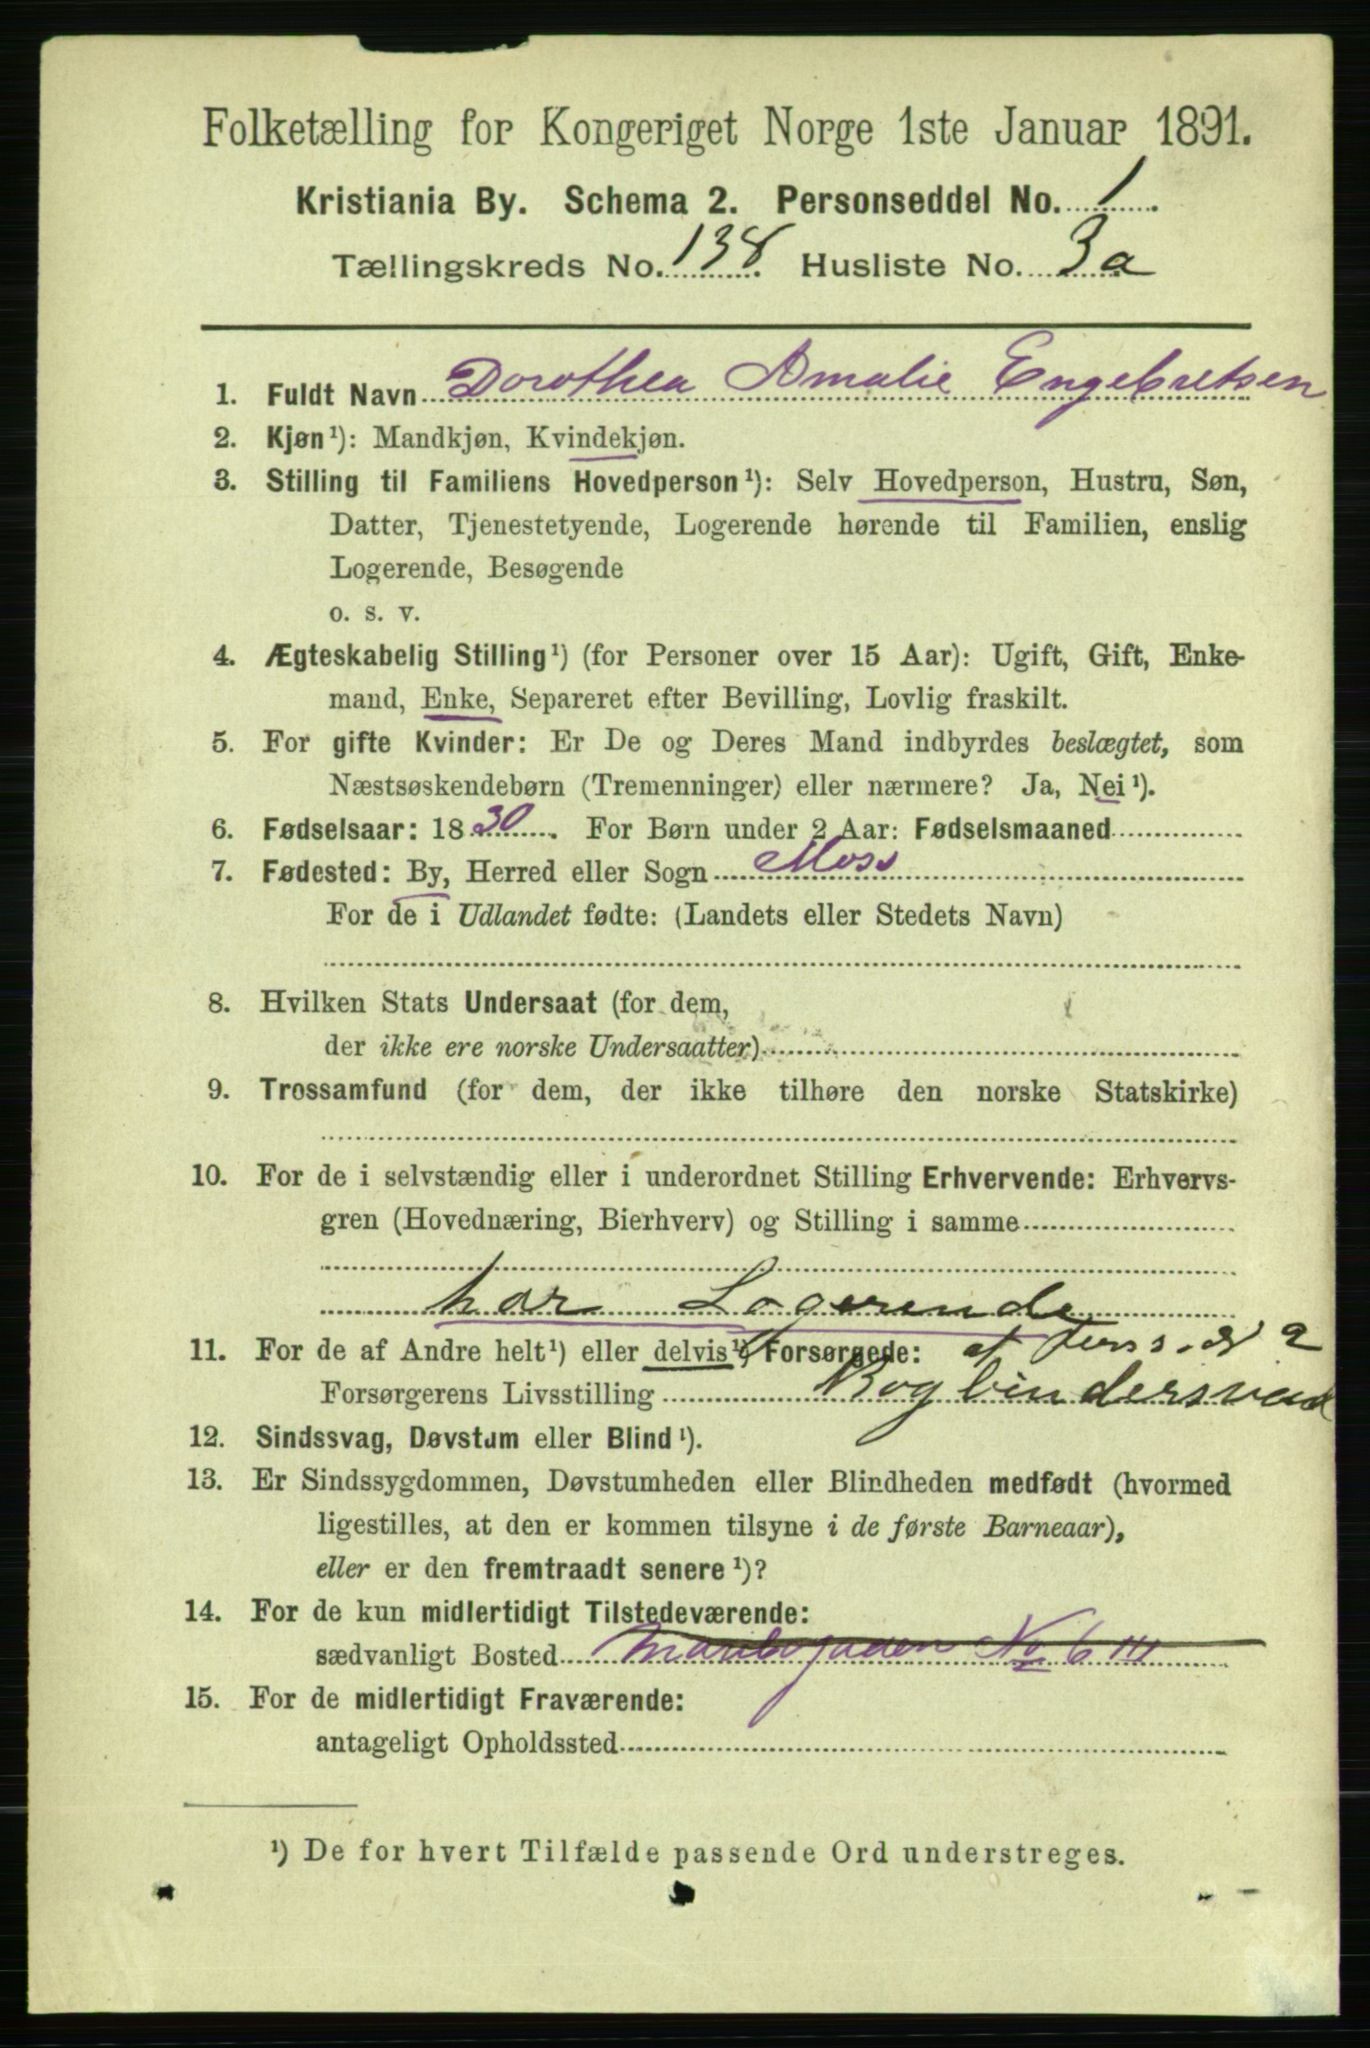 Folketælling for Kongeriget Norge 1ste Januar 1891.
Kristiania By. Schema 2. Personseddel No. 1
Tællingskreds No. 138. Husliste No. 3a
1. Fuldt Navn Dorothea Amalie Engebretsen
2. Kjøn¹): Mandkjøn, Kvindekjøn.
3. Stilling til Familiens Hovedperson¹): Selv Hovedperson, Hustru, Søn,
Datter, Tjenestetyende, Logerende hørende til Familien, enslig
Logerende, Besøgende
o. s. v.
4. Ægteskabelig Stilling¹) (for Personer over 15 Aar): Ugift, Gift, Enke-
mand, Enke, Separeret efter Bevilling, Lovlig fraskilt.
5. For gifte Kvinder: Er De og Deres Mand indbyrdes beslægtet, som
Næstsøskendebørn (Tremenninger) eller nærmere? Ja, Nei¹).
6. Fødselsaar: 1830. For Børn under 2 Aar: Fødselsmaaned
7. Fødested: By, Herred eller Sogn Moss
For de i Udlandet fødte: (Landets eller Stedets Navn)
8. Hvilken Stats Undersaat (for dem,
der ikke ere norske Undersaatter)
9. Trossamfund (for dem, der ikke tilhøre den norske Statskirke)
10. For de i selvstændig eller i underordnet Stilling Erhvervende: Erhvervs-
gren (Hovednæring, Bierhverv) og Stilling i samme
har Logerende
11. For de af Andre helt¹) eller delvis¹) Forsørgede: af Pers. 2
Forsørgerens Livsstilling
12. Sindssvag, Døvstum eller Blind¹).
13. Er Sindssygdommen, Døvstumheden eller Blindheden medfødt (hvormed
ligestilles, at den er kommen tilsyne i de første Barneaar),
eller er den fremtraadt senere¹)?
14. For de kun midlertidigt Tilstedeværende:
sædvanligt Bosted Maribogaden No 6 III
15. For de midlertidigt Fraværende:
antageligt Opholdssted
¹) De for hvert Tilfælde passende Ord understreges.